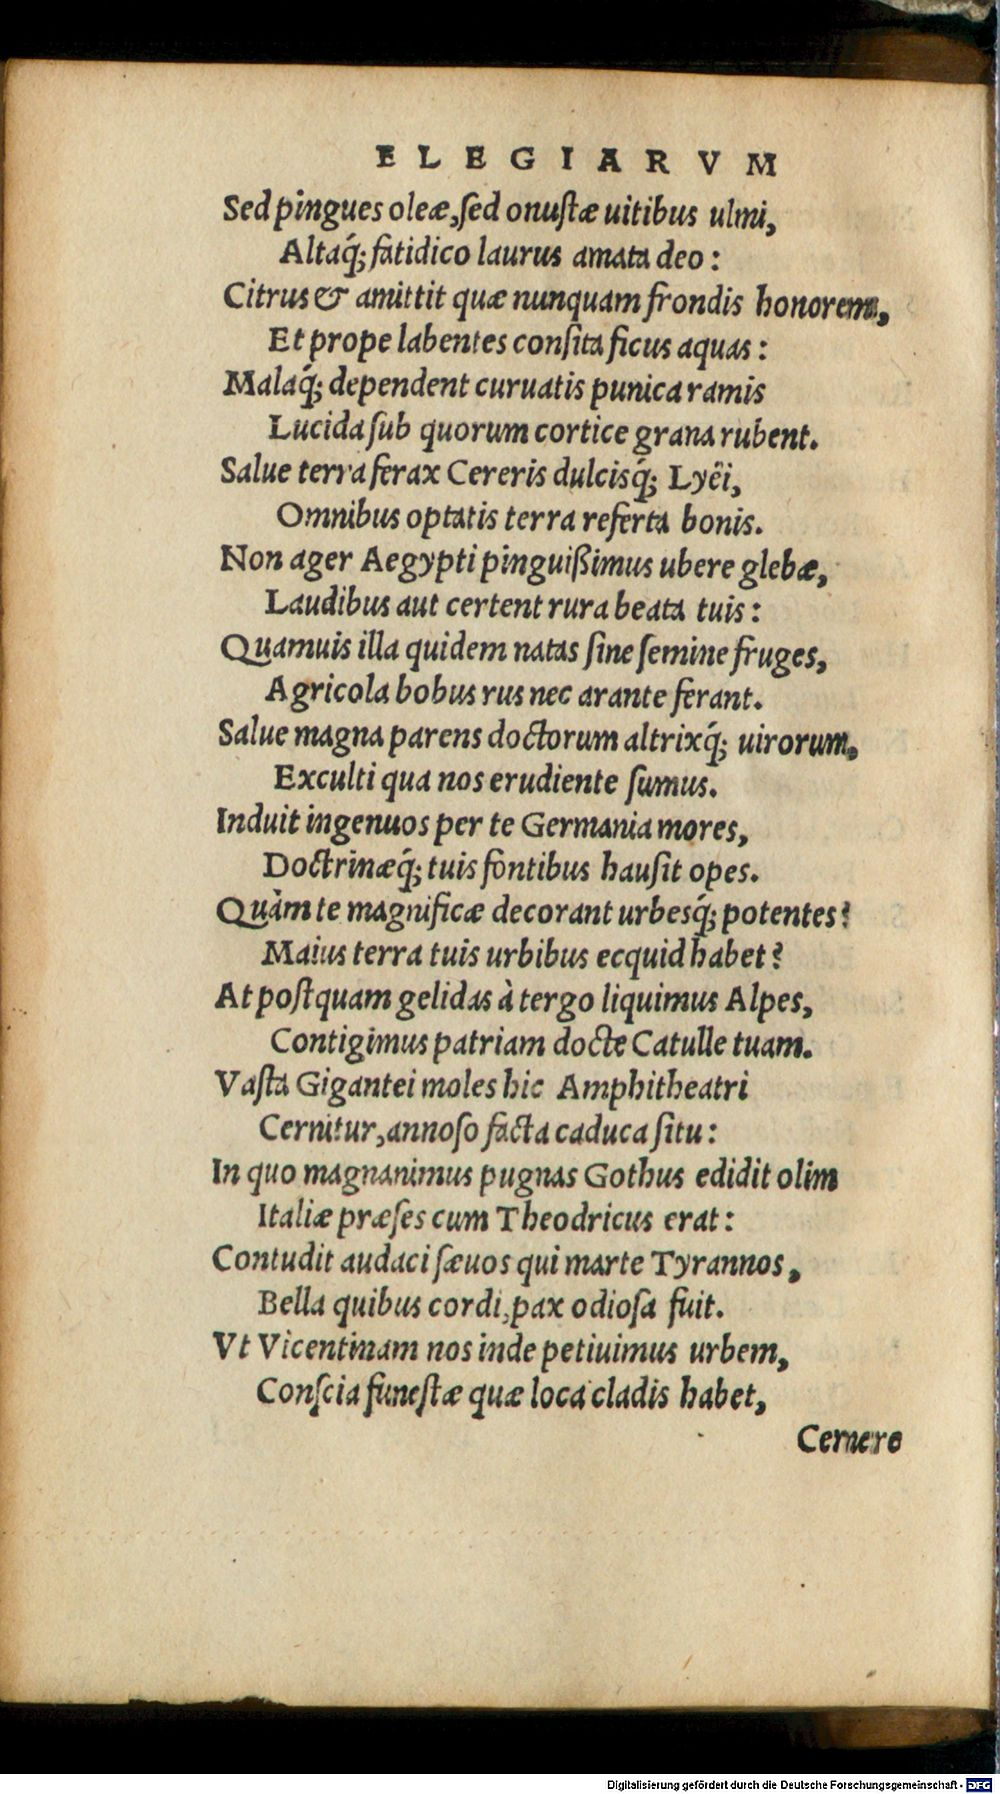 ELEGIARVM
Sed pingues oleæ, sed onustæ uitibus ulmi,
Altaq́; fatidico laurus amata deo:
Citrus & amittit quæ nunquam frondis honorem,
Et prope labentes consita ficus aquas:
Malaq́; dependent curuatis punica ramis
Lucida sub quorum cortice grana rubent.
Salue terra ferax Cereris dulcisq́; Lyëi,
Omnibus optatis terra referta bonis.
Non ager Aegypti pinguißimus ubere glebæ,
Laudibus aut certent rura beata tuis:
Quamuis illa quidem natas sine semine fruges,
Agricola bobus rus nec arante ferant.
Salue magna parens doctorum altrixq́; uirorum,
Exculti qua nos erudiente sumus.
Induit ingenuos per te Germania mores,
Doctrinæq́; tuis fontibus hausit opes.
Quàm te magnificæ decorant urbesq́; potentes?
Maius terra tuis urbibus ecquid habet?
At postquam gelidas à tergo liquimus Alpes,
Contigimus patriam docte Catulle tuam.
Vasta Gigantei moles hic Amphitheatri
Cernitur, annoso facta caduca situ:
In quo magnanimus pugnas Gothus edidit olim
Italiæ præses cum Theodricus erat:
Contudit audaci sæuos qui marte Tyrannos,
Bella quibus cordi, pax odiosa fuit.
Vt Vicentinam nos inde petiuimus urbem,
Conscia funestæ quæ loca cladis habet,
Cernere
Digitalisierung gefördert durch die Deutsche Forschungsgemeinschaft - DFG